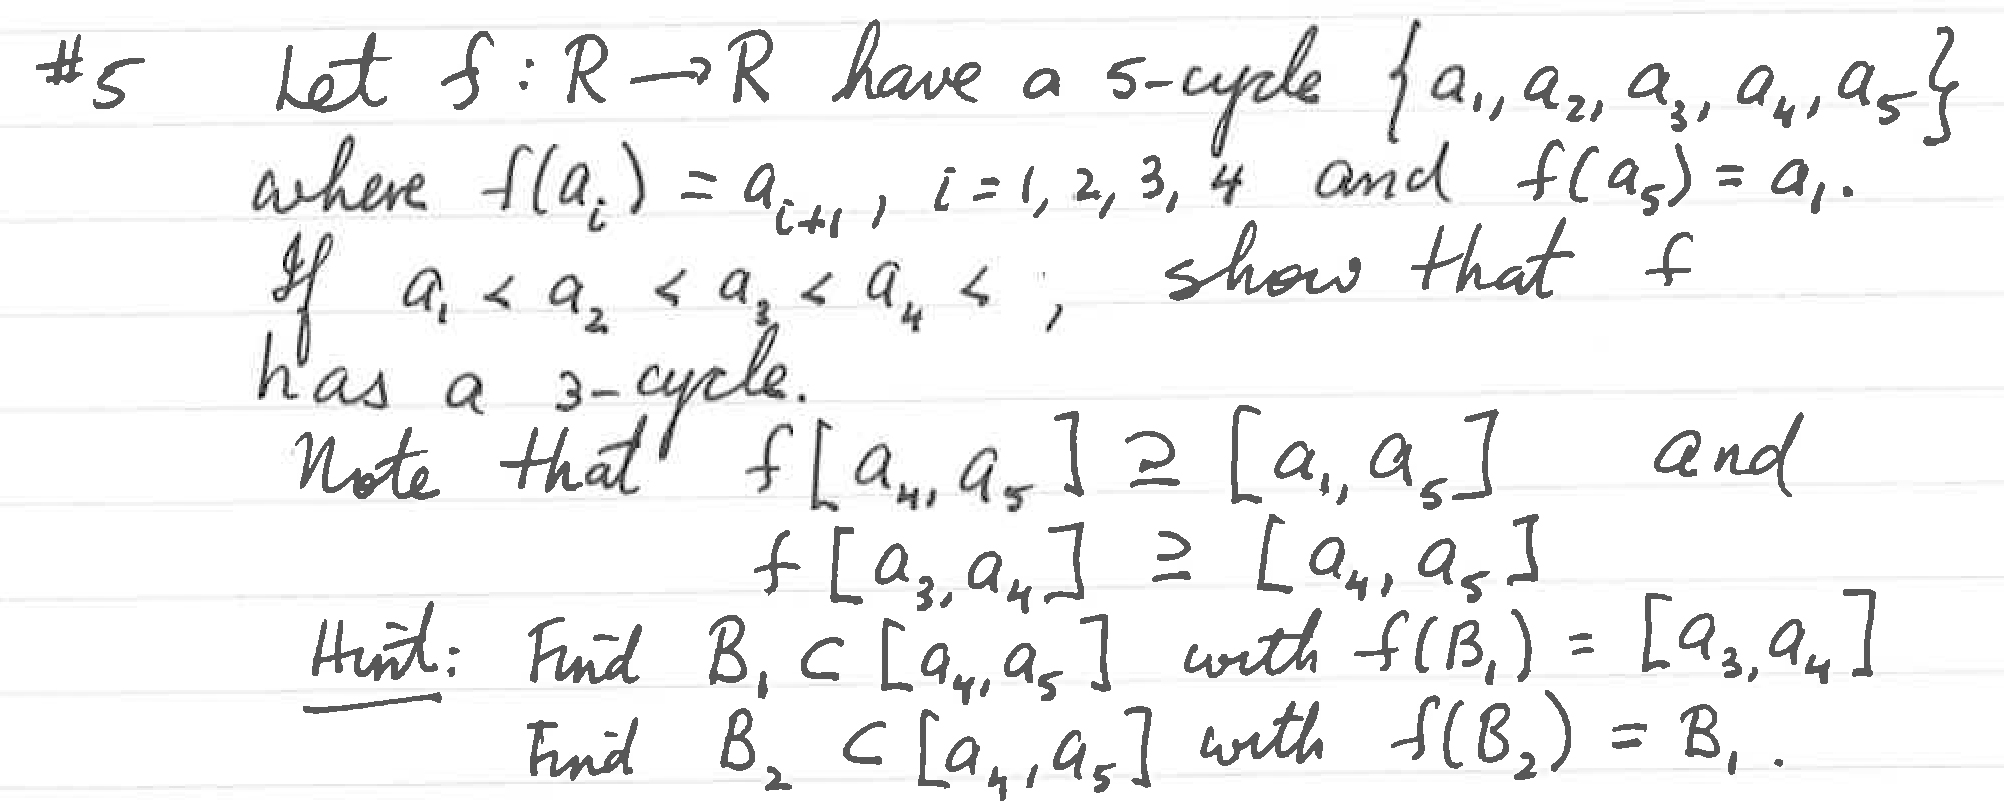 #5 Let f : R → R have a 5-cycle {a₁, a₂, a₃, a₄, a₅}
where f(aᵢ) = aᵢ₊₁, i = 1, 2, 3, 4 and f(a₅) = a₁.
If a₁ < a₂ < a₃ < a₄ < , show that f
has a 3-cycle.
Note that f[a₄, a₅] ⊇ [a₁, a₅] and
f[a₃, a₄] ⊇ [a₄, a₅]
Hint: Find B₁ ⊂ [a₄, a₅] with f(B₁) = [a₃, a₄]
Find B₂ ⊂ [a₄, a₅] with f(B₂) = B₁.